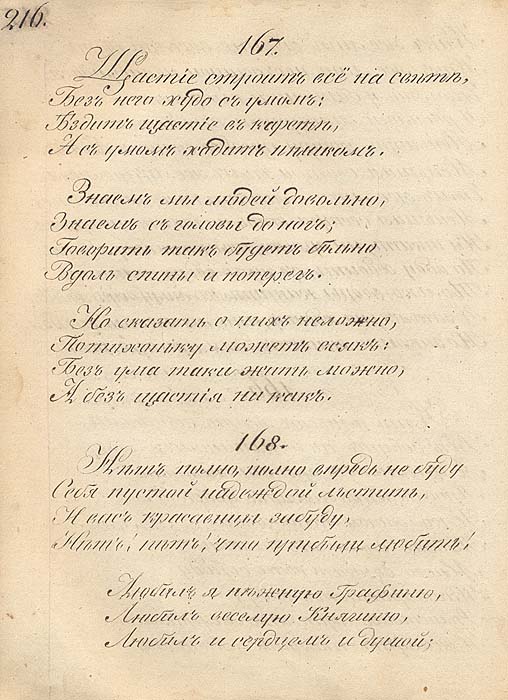 216.
167.
Щастіе строитъ всё на свѣтѣ,
Безъ него худо съ умомъ;
Ѣздитъ щастіе въ каретѣ,
А съ умомъ ходитъ и пѣшкомъ.
Знаемъ мы людей довольно,
Знаемъ съ головы до ногъ;
Говорить такъ будетъ больно
Вдоль спины и поперегъ.
Но сказать о нихъ неложно,
Потихоньку можетъ всякъ:
Безъ ума таки жить можно,
А безъ щастія ни какъ.
168.
Нѣтъ полно, полно впредь не буду
Себя пустой надеждой льстить,
И васъ красавицы забуду,
Нѣтъ! нѣтъ! что прибыли любить!
Любилъ я нѣжную Графиню,
Любилъ веселую Княгиню,
Любилъ и сердцемъ и душой;